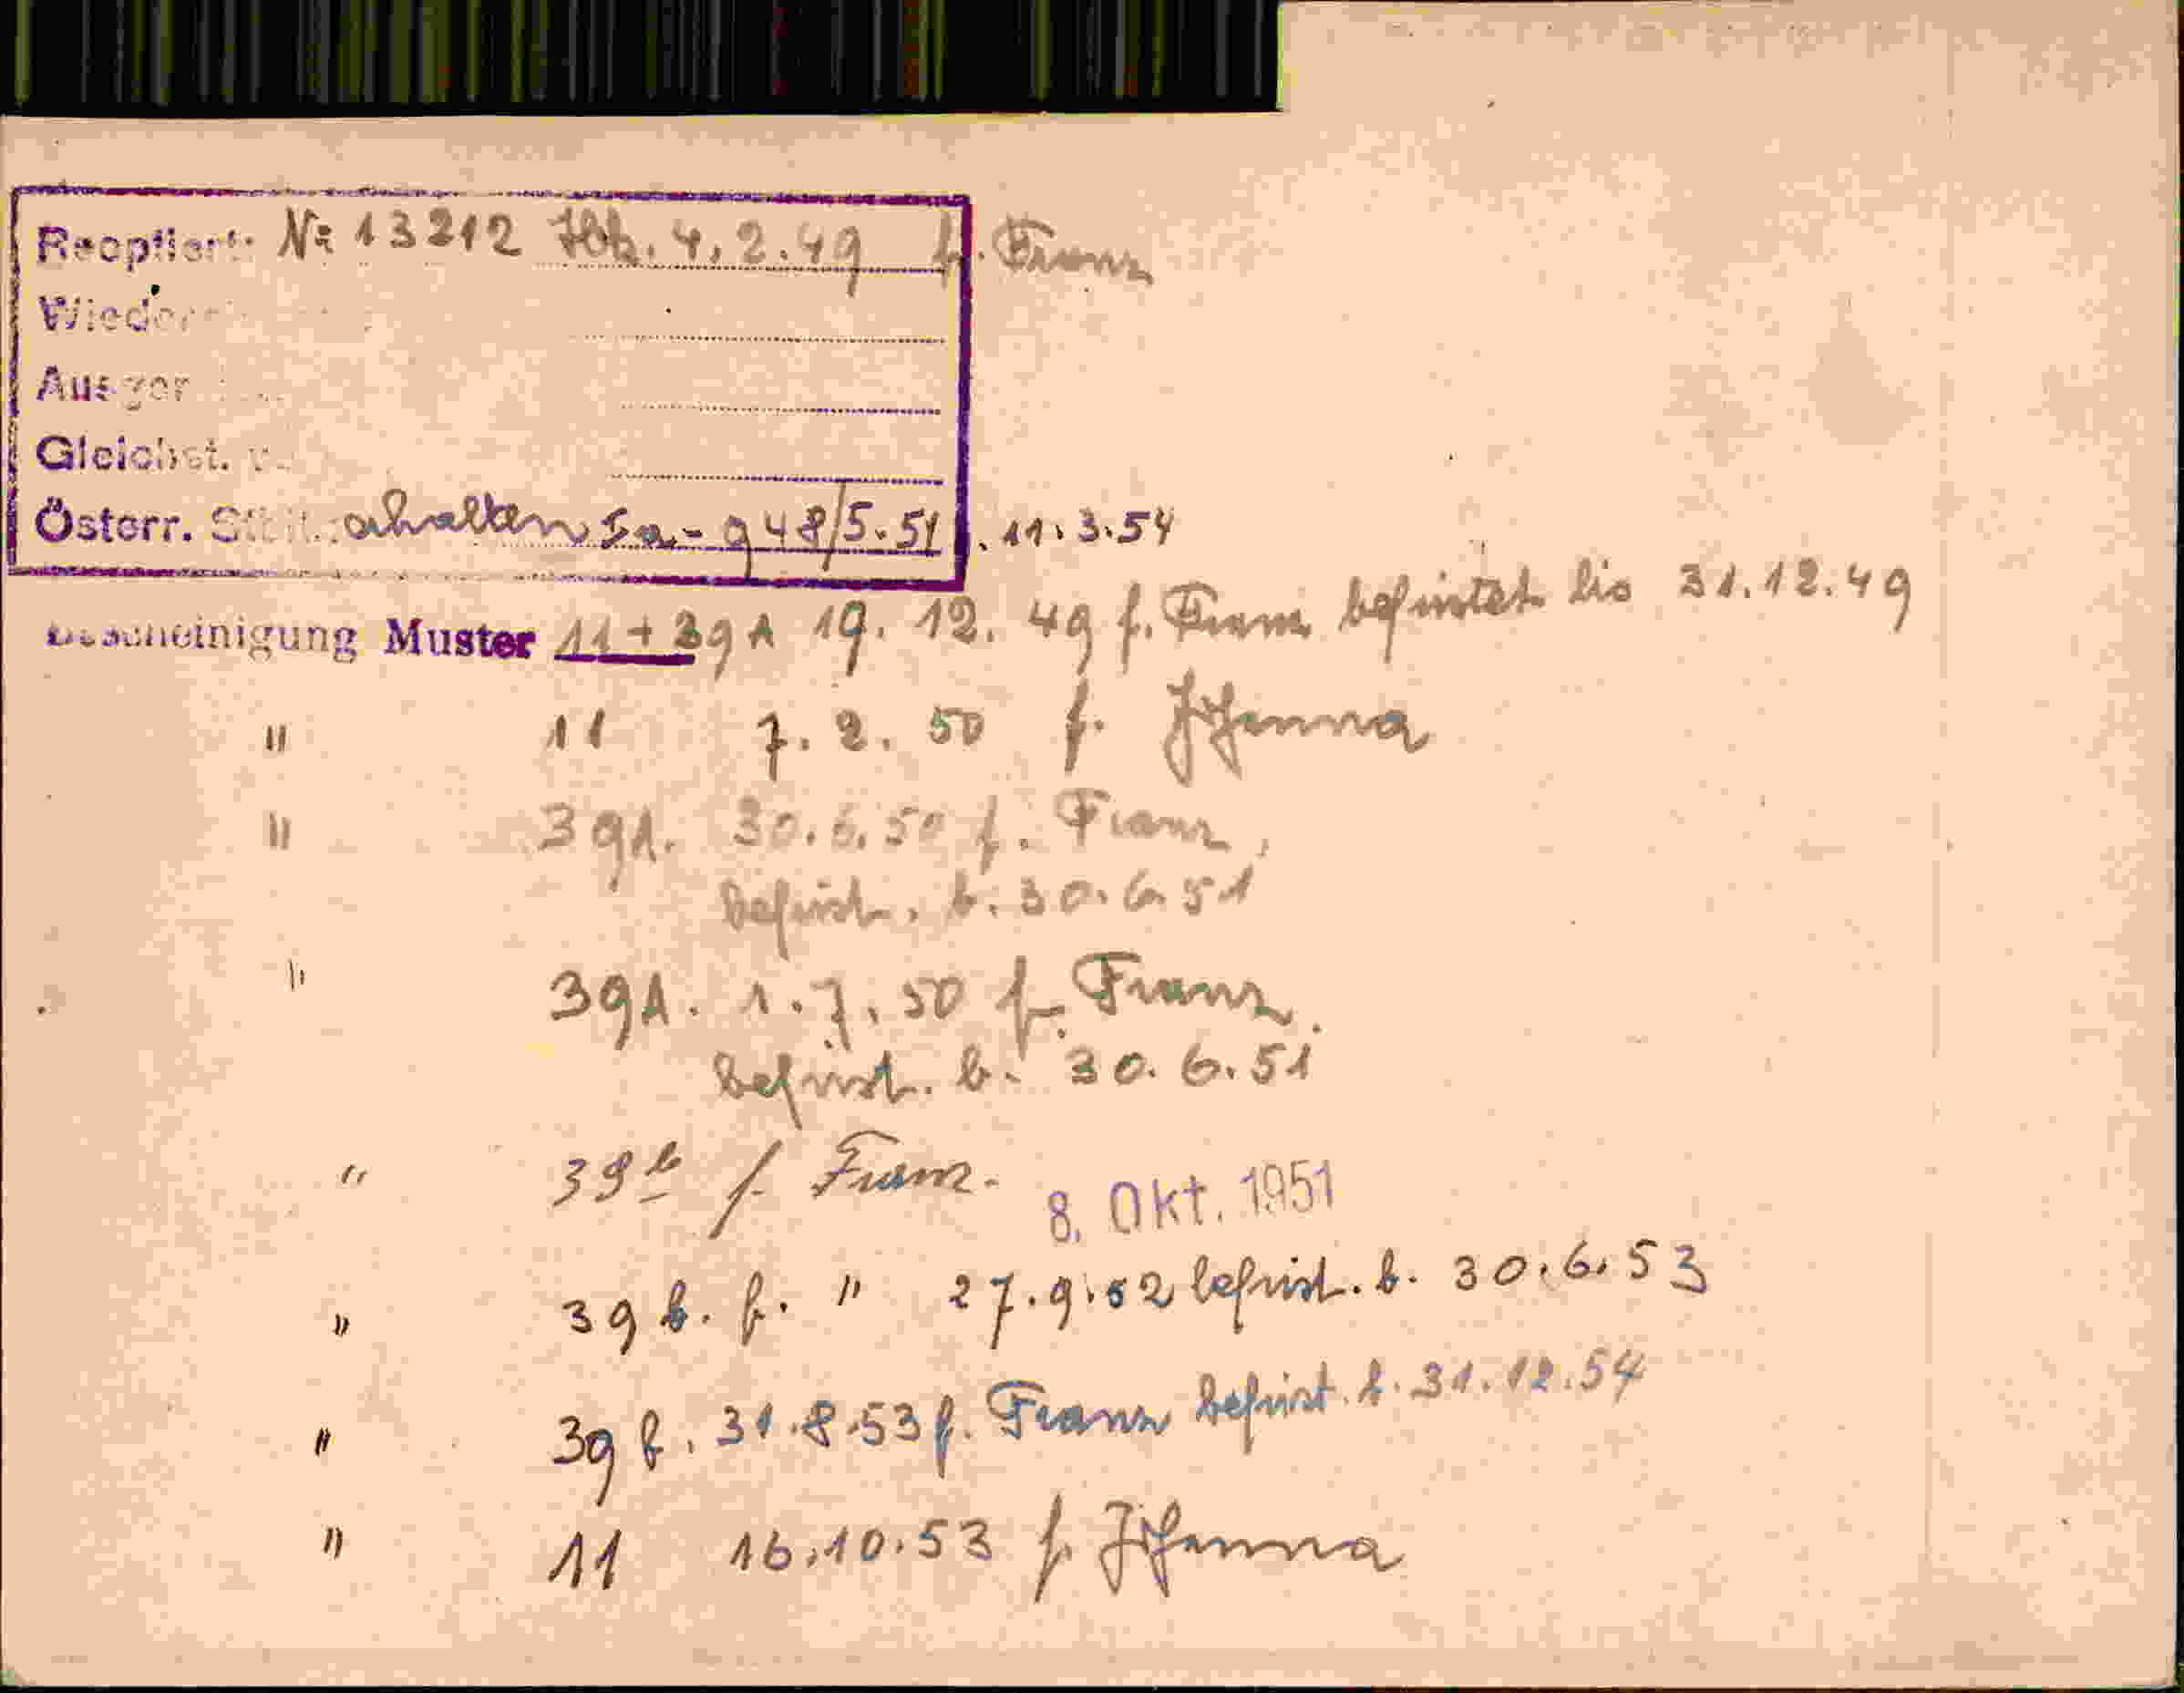 Reoptiert: № 13212 4.2.49 f. Franz
Wieder
Ausger
Gleichst. v.
Österr. erhalten Sa - 948/5.51. 11.3.54
Bescheinigung Muster 11 + 39A 19. 12. 49 f. Franz befristet bis 31.12.49
" 11 7. 2. 50 f. Johanna
" 39A. 30.6.50 f. Franz,
befrist. b. 30.6.51
" 39A. 1.7.50 f. Franz.
befrist. b. 30.6.51
" 39b f. Franz. 8. Okt. 1951
" 39 b. f. " 27.9.52 befrist. b. 30.6.53
" 39 31.8.53 f. Franz befrist. b. 31.12.54
" 11 16.10.53 f. Johanna